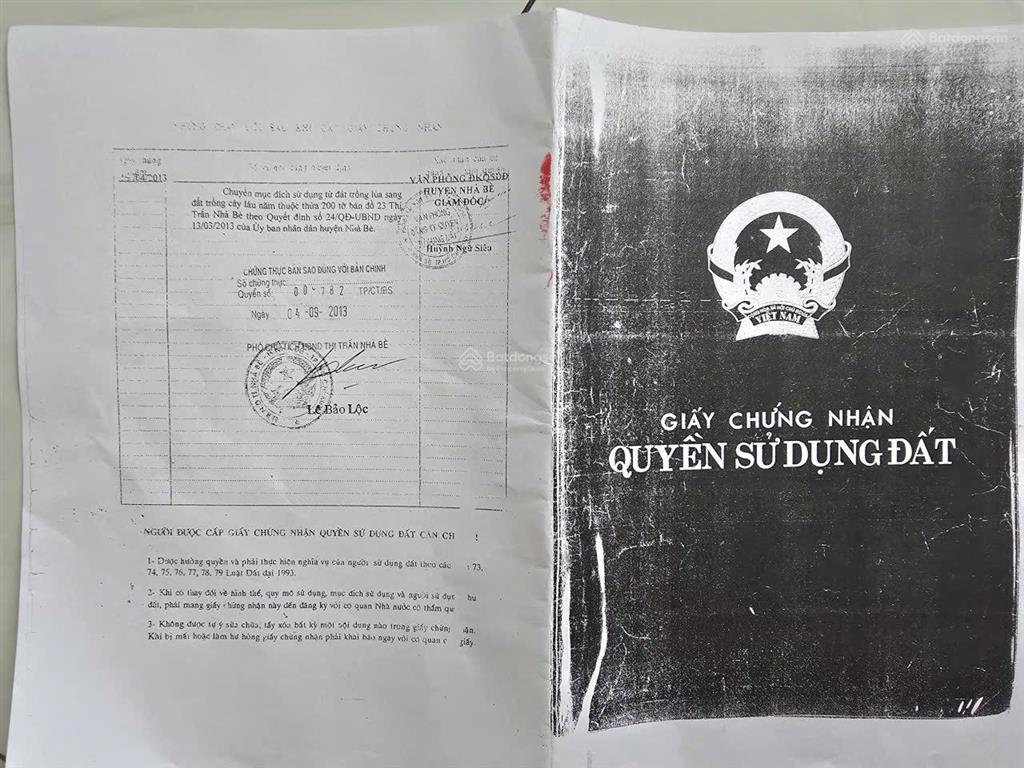 NHỮNG THAY ĐỔI SAU KHI CẤP GIẤY CHỨNG NHẬN
2013
Chuyển mục đích sử dụng từ đất trồng lúa sang
đất trồng cây lâu năm thuộc thửa 200 tờ bản đồ 23 Thị
Trấn Nhà Bè theo Quyết định số 24/QĐ-UBND ngày
13/03/2013 của Ủy ban nhân dân huyện Nhà Bè.
VĂN PHÒNG ĐKQSDĐ
HUYỆN NHÀ BÈ
GIÁM ĐỐC
VĂN PHÒNG
Huỳnh Ngữ Siêu
CHỨNG THỰC BẢN SAO ĐÚNG VỚI BẢN CHÍNH
Số chứng thực
Quyển số: 00-782 TP/CT/BS
Ngày 04-09-2013
PHÓ CHỦ TỊCH UBND THỊ TRẤN NHÀ BÈ
Lê Bảo Lộc
NGƯỜI ĐƯỢC CẤP GIẤY CHỨNG NHẬN QUYỀN SỬ DỤNG ĐẤT CẦN CH !
1- Được hưởng quyền và phải thực hiện nghĩa vụ của người sử dụng đất theo các 73,
74, 75, 76, 77, 78, 79 Luật Đất đai 1993.
2- Khi có thay đổi về hình thể, quy mô sử dụng, mục đích sử dụng và người sử dụng
đất, phải mang giấy chứng nhận này đến đăng ký với cơ quan Nhà nước có thẩm qu
3- Không được tự ý sửa chữa, tẩy xóa bất kỳ một nội dung nào trong giấy chứng
Khi bị mất hoặc làm hư hỏng giấy chứng nhận phải khai báo ngay với cơ quan giấy.
Batdongsan
by PropertyGuru
Batdongsan
VIỆT NAM
GIẤY CHỨNG NHẬN
QUYỀN SỬ DỤNG ĐẤT